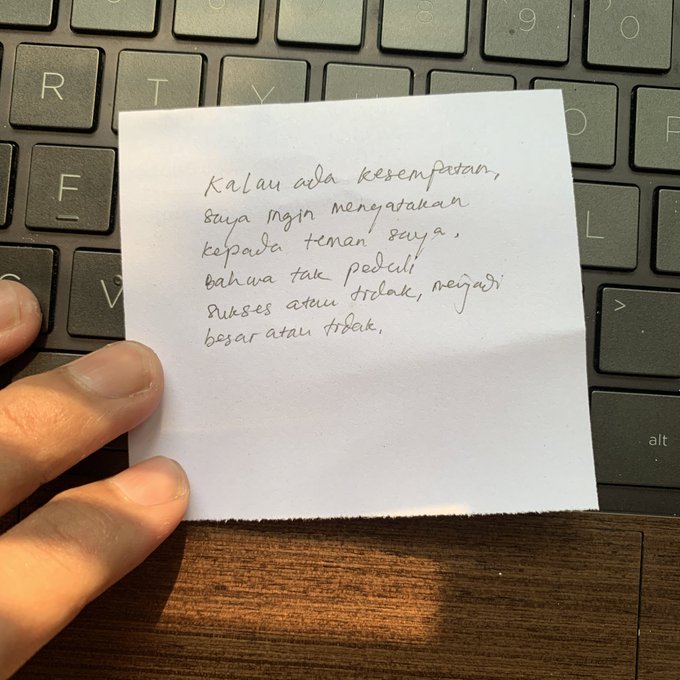 8 9 0
R T Y O P
F L
V >
alt
Kalau ada kesempatan,
saya ingin mengatakan
kepada teman saya.
Bahwa tak peduli
sukses atau tidak, menjadi
besar atau tidak.